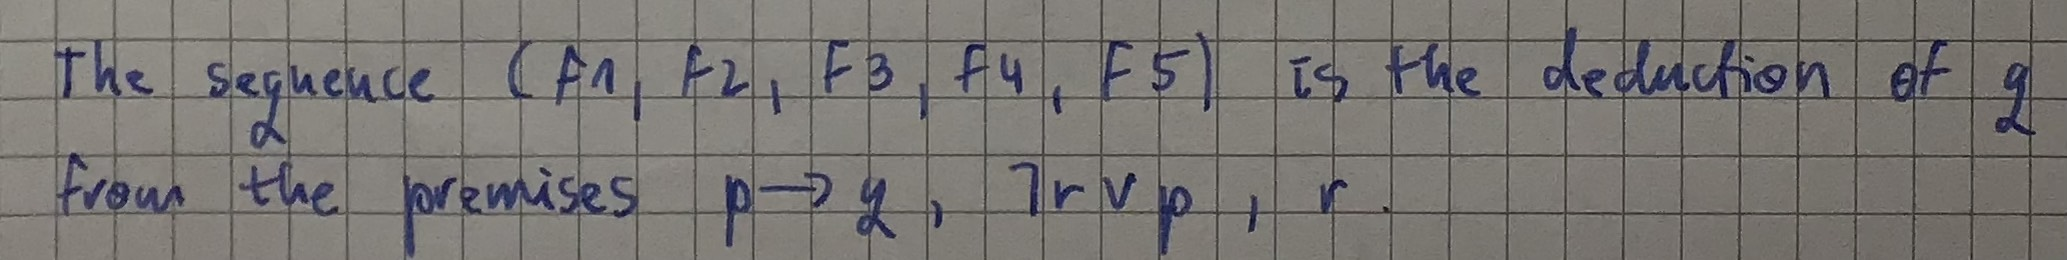 The sequence (F1, F2, F3, F4, F5) is the deduction of q
from the premises p → q, ¬r ∨ p, r.